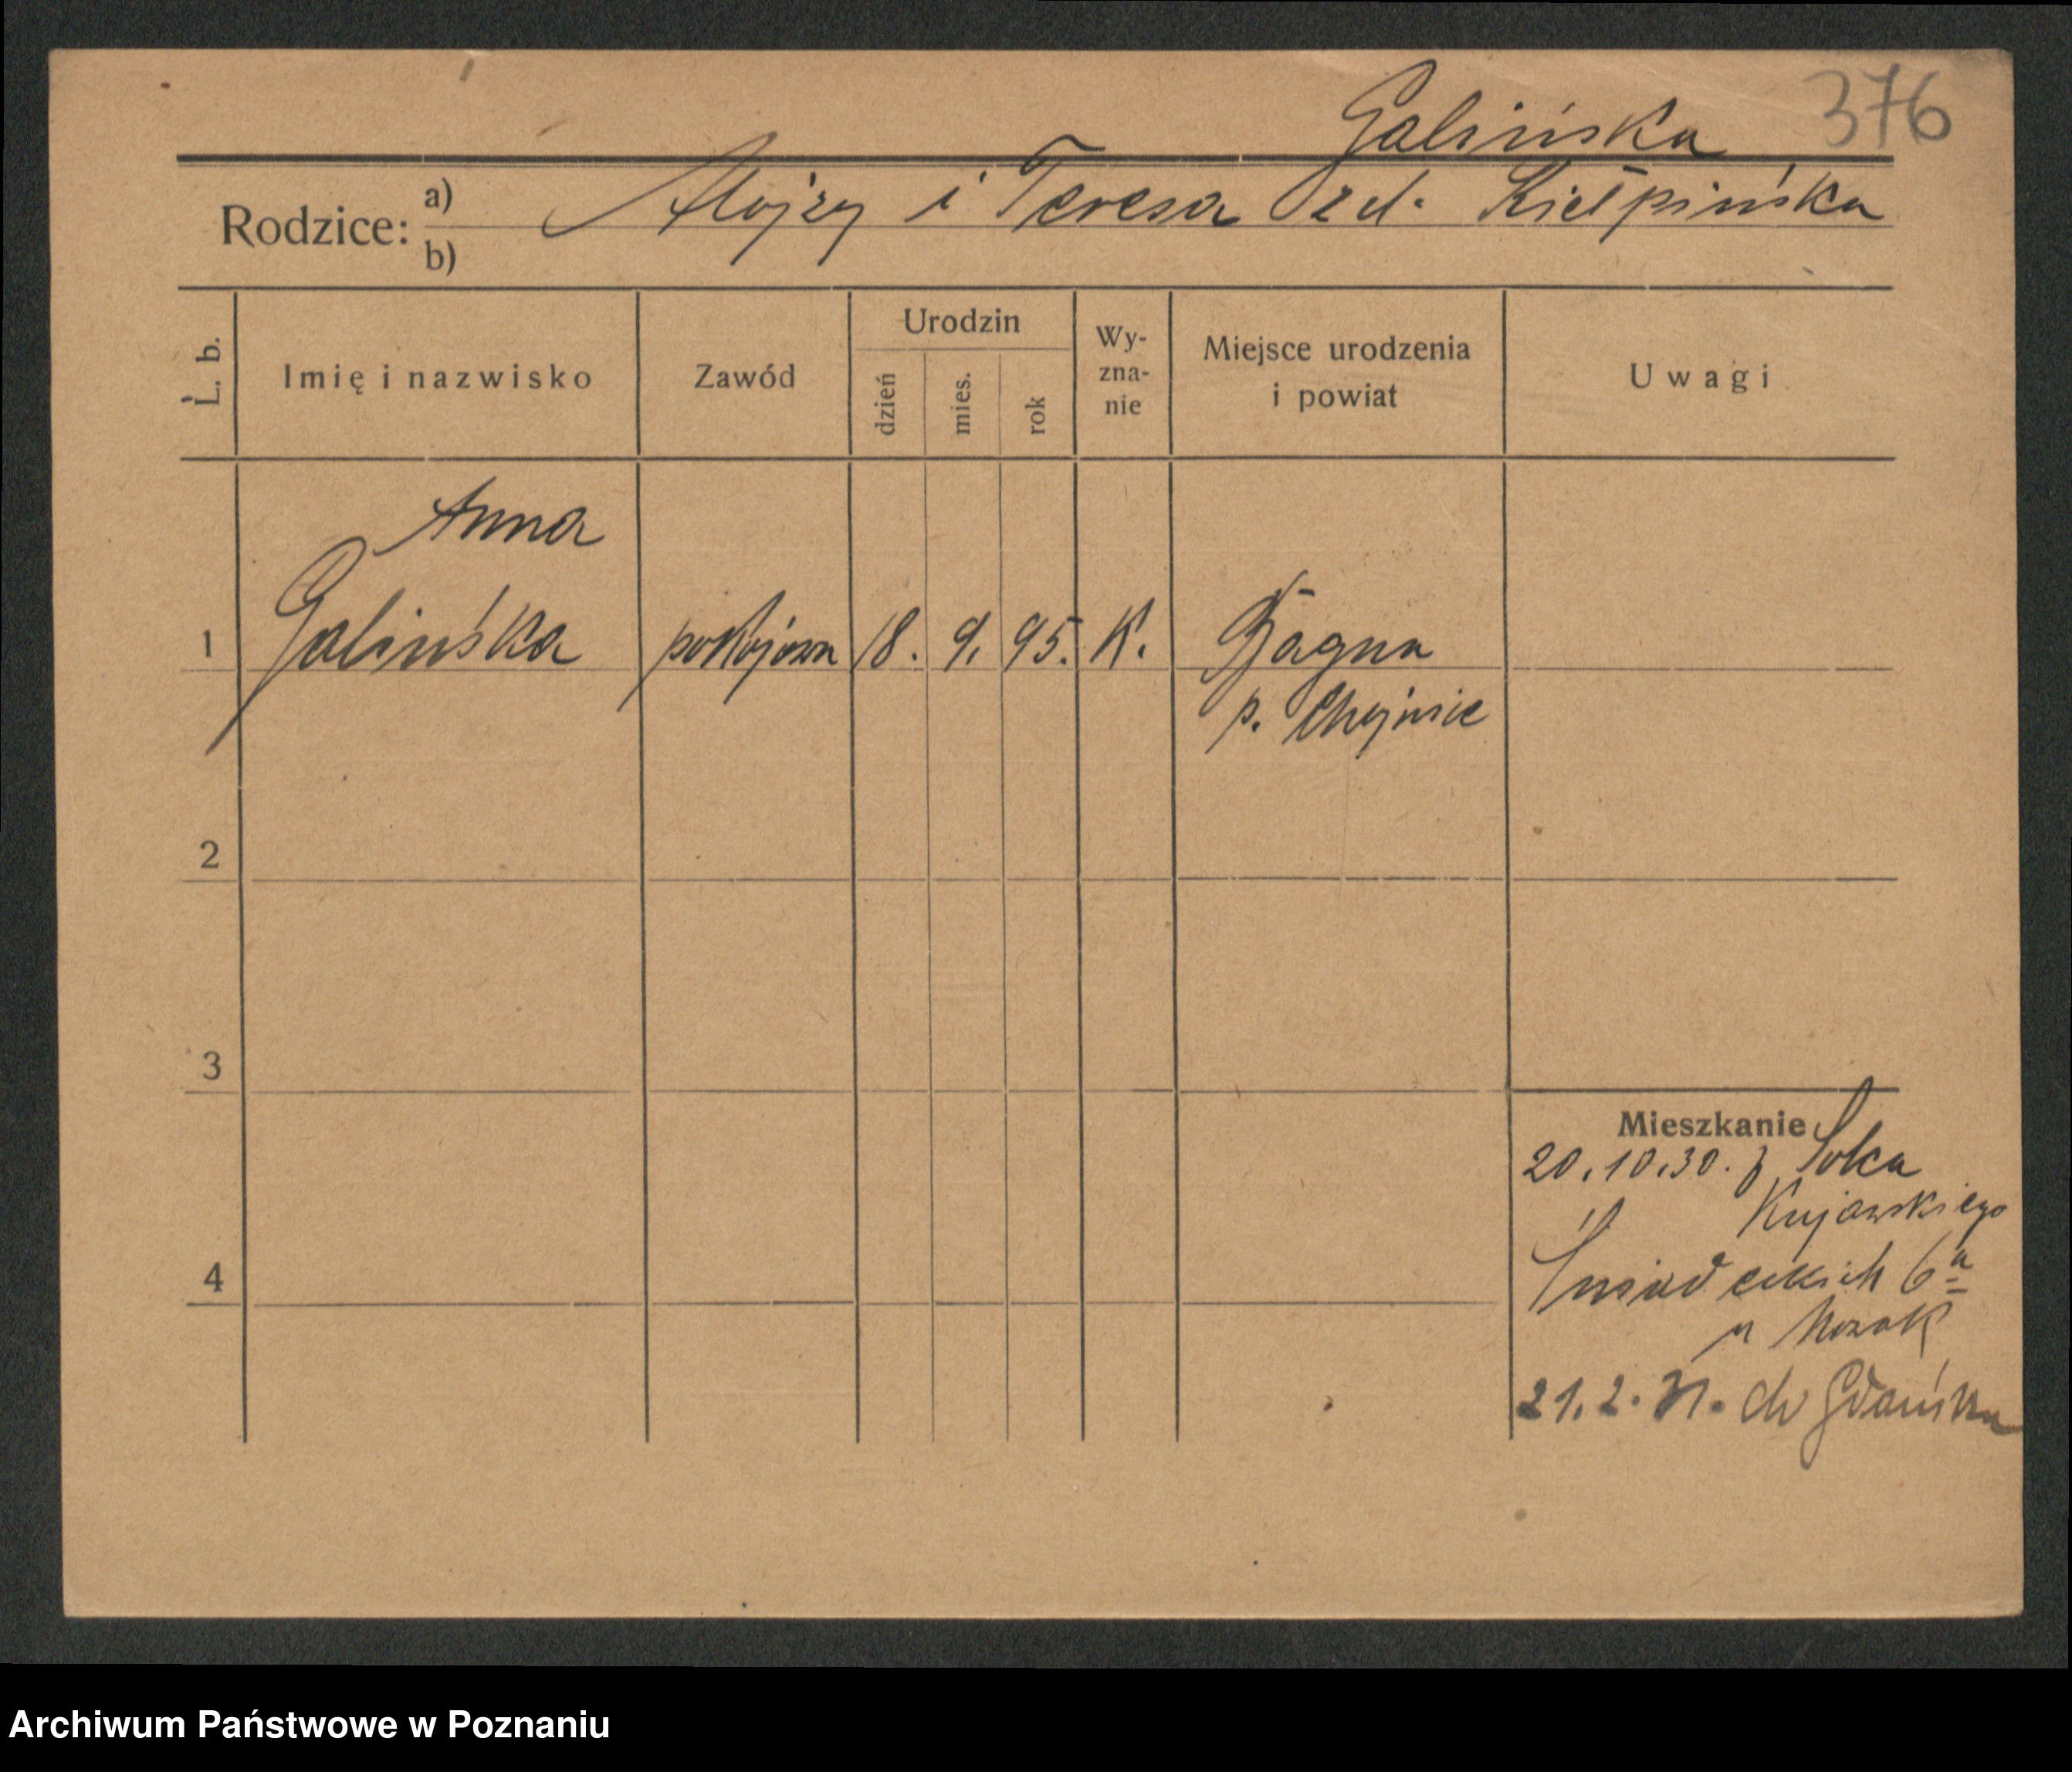 376
Galińska
Rodzice: a) Alojzy i Teresa zd. Kiełpińska
b)
L. b.
Imię i nazwisko
Zawód
Urodzin
dzień
mies.
rok
Wy-
zna-
nie
Miejsce urodzenia
i powiat
Uwagi
Anna
1 Galińska pokojowa 18. 9. 95. K.
p. Chojnice
2
3
4
Mieszkanie
20.10.30. z Solca
Kujawskiego
Śniadeckich 6a
u Nozak
21.2.31. do Gdańska
Archiwum Państwowe w Poznaniu